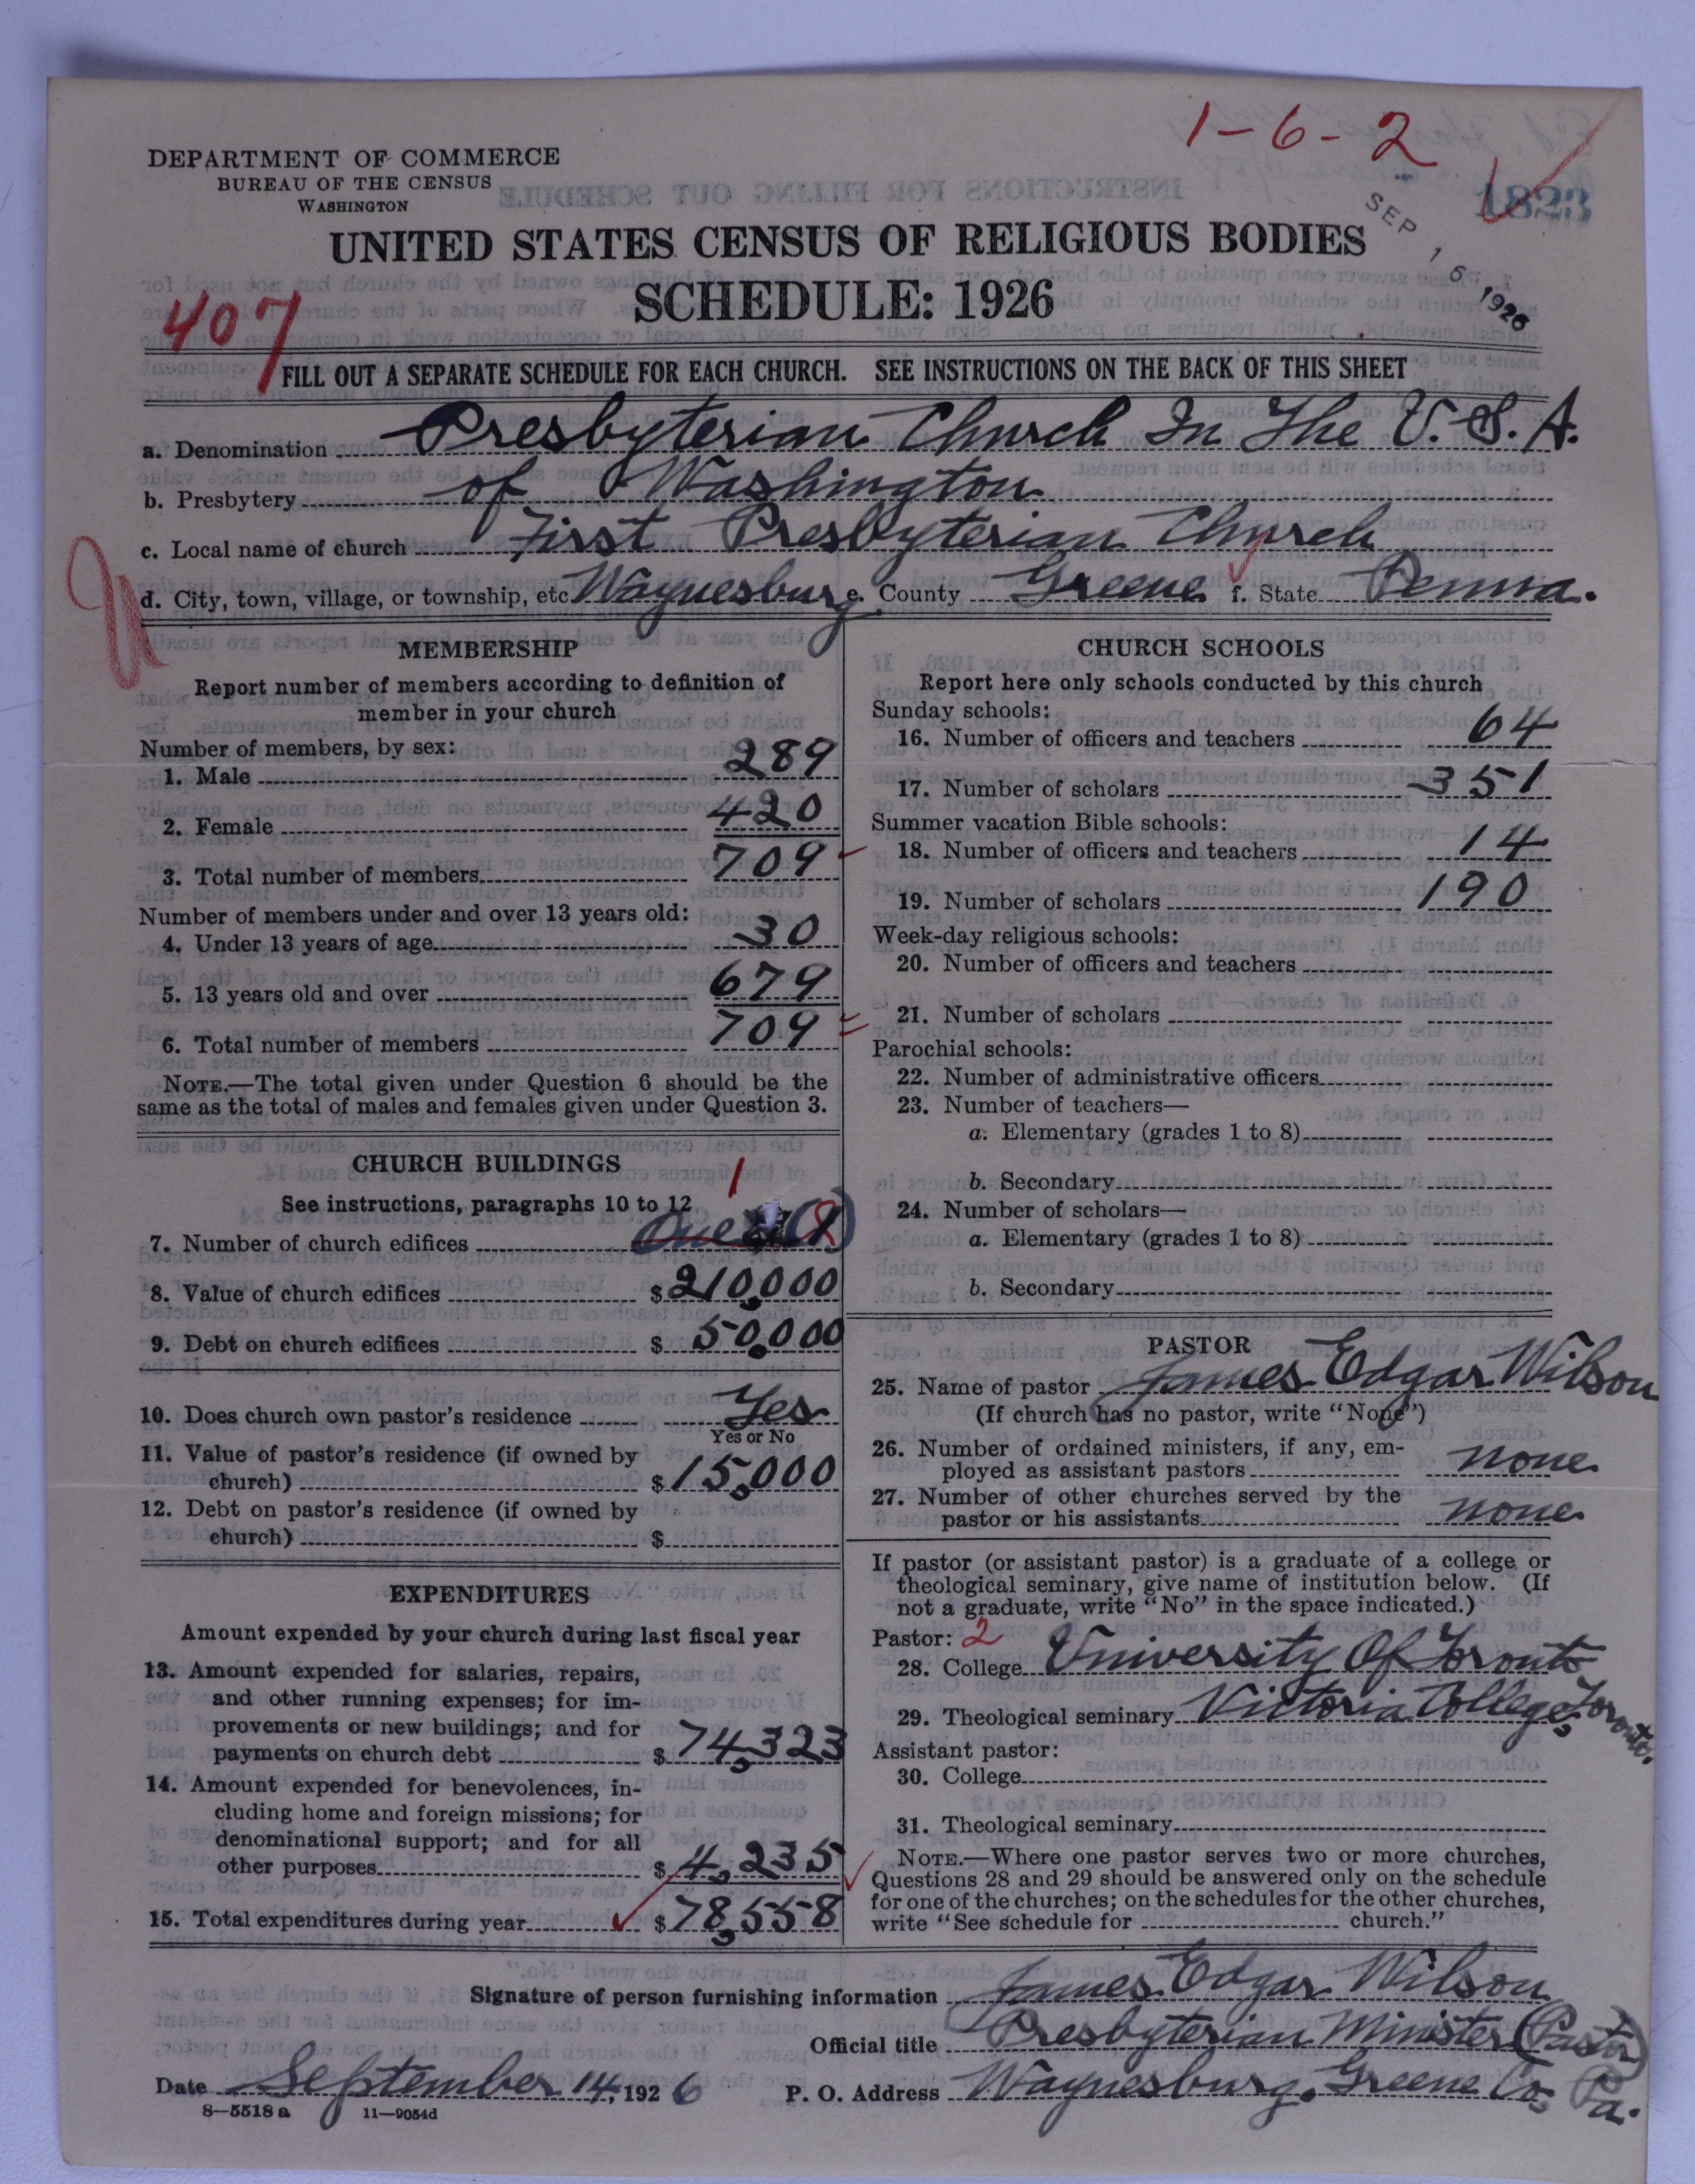 1-6-2
DEPARTMENT OF COMMERCE
BUREAU OF THE CENSUS
WASHINGTON
SEP 16 1926
UNITED STATES CENSUS OF RELIGIOUS BODIES
SCHEDULE: 1926
407
FILL OUT A SEPARATE SCHEDULE FOR EACH CHURCH. SEE INSTRUCTIONS ON THE BACK OF THIS SHEET
a. Denomination Presbyterian Church In The U.S.A.
b. Presbytery of Washington
c. Local name of church First Presbyterian Church
d. City, town, village, or township, etc Waynesburg e. County Greene f. State Penna.
MEMBERSHIP
Report number of members according to definition of
member in your church
Number of members, by sex:
1. Male 289
2. Female 420
3. Total number of members 709
Number of members under and over 13 years old:
4. Under 13 years of age 30
5. 13 years old and over 679
6. Total number of members 709
NOTE.—The total given under Question 6 should be the
same as the total of males and females given under Question 3.
CHURCH BUILDINGS
See instructions, paragraphs 10 to 12
1
7. Number of church edifices One
8. Value of church edifices $210,000
9. Debt on church edifices $50,000
10. Does church own pastor's residence Yes
Yes or No
11. Value of pastor's residence (if owned by
church) $15,000
12. Debt on pastor's residence (if owned by
church) $
EXPENDITURES
Amount expended by your church during last fiscal year
13. Amount expended for salaries, repairs,
and other running expenses; for im-
provements or new buildings; and for
payments on church debt $74,323
14. Amount expended for benevolences, in-
cluding home and foreign missions; for
denominational support; and for all
other purposes $4,235
15. Total expenditures during year $78,558
CHURCH SCHOOLS
Report here only schools conducted by this church
Sunday schools:
16. Number of officers and teachers 64
17. Number of scholars 351
Summer vacation Bible schools:
18. Number of officers and teachers 14
19. Number of scholars 190
Week-day religious schools:
20. Number of officers and teachers
21. Number of scholars
Parochial schools:
22. Number of administrative officers
23. Number of teachers—
a. Elementary (grades 1 to 8)
b. Secondary
24. Number of scholars—
a. Elementary (grades 1 to 8)
b. Secondary
PASTOR
25. Name of pastor James Edgar Wilson
(If church has no pastor, write "None")
26. Number of ordained ministers, if any, em-
ployed as assistant pastors none
27. Number of other churches served by the
pastor or his assistants none
If pastor (or assistant pastor) is a graduate of a college or
theological seminary, give name of institution below. (If
not a graduate, write "No" in the space indicated.)
Pastor: 2
28. College University Of Toronto
29. Theological seminary Victoria College, Toronto.
Assistant pastor:
30. College
31. Theological seminary
NOTE.—Where one pastor serves two or more churches,
Questions 28 and 29 should be answered only on the schedule
for one of the churches; on the schedules for the other churches,
write "See schedule for church."
Signature of person furnishing information James Edgar Wilson
Official title Presbyterian Minister (Pastor)
Date September 14, 1926 P. O. Address Waynesburg, Greene Co. Pa.
8—5518 a 11—9054d